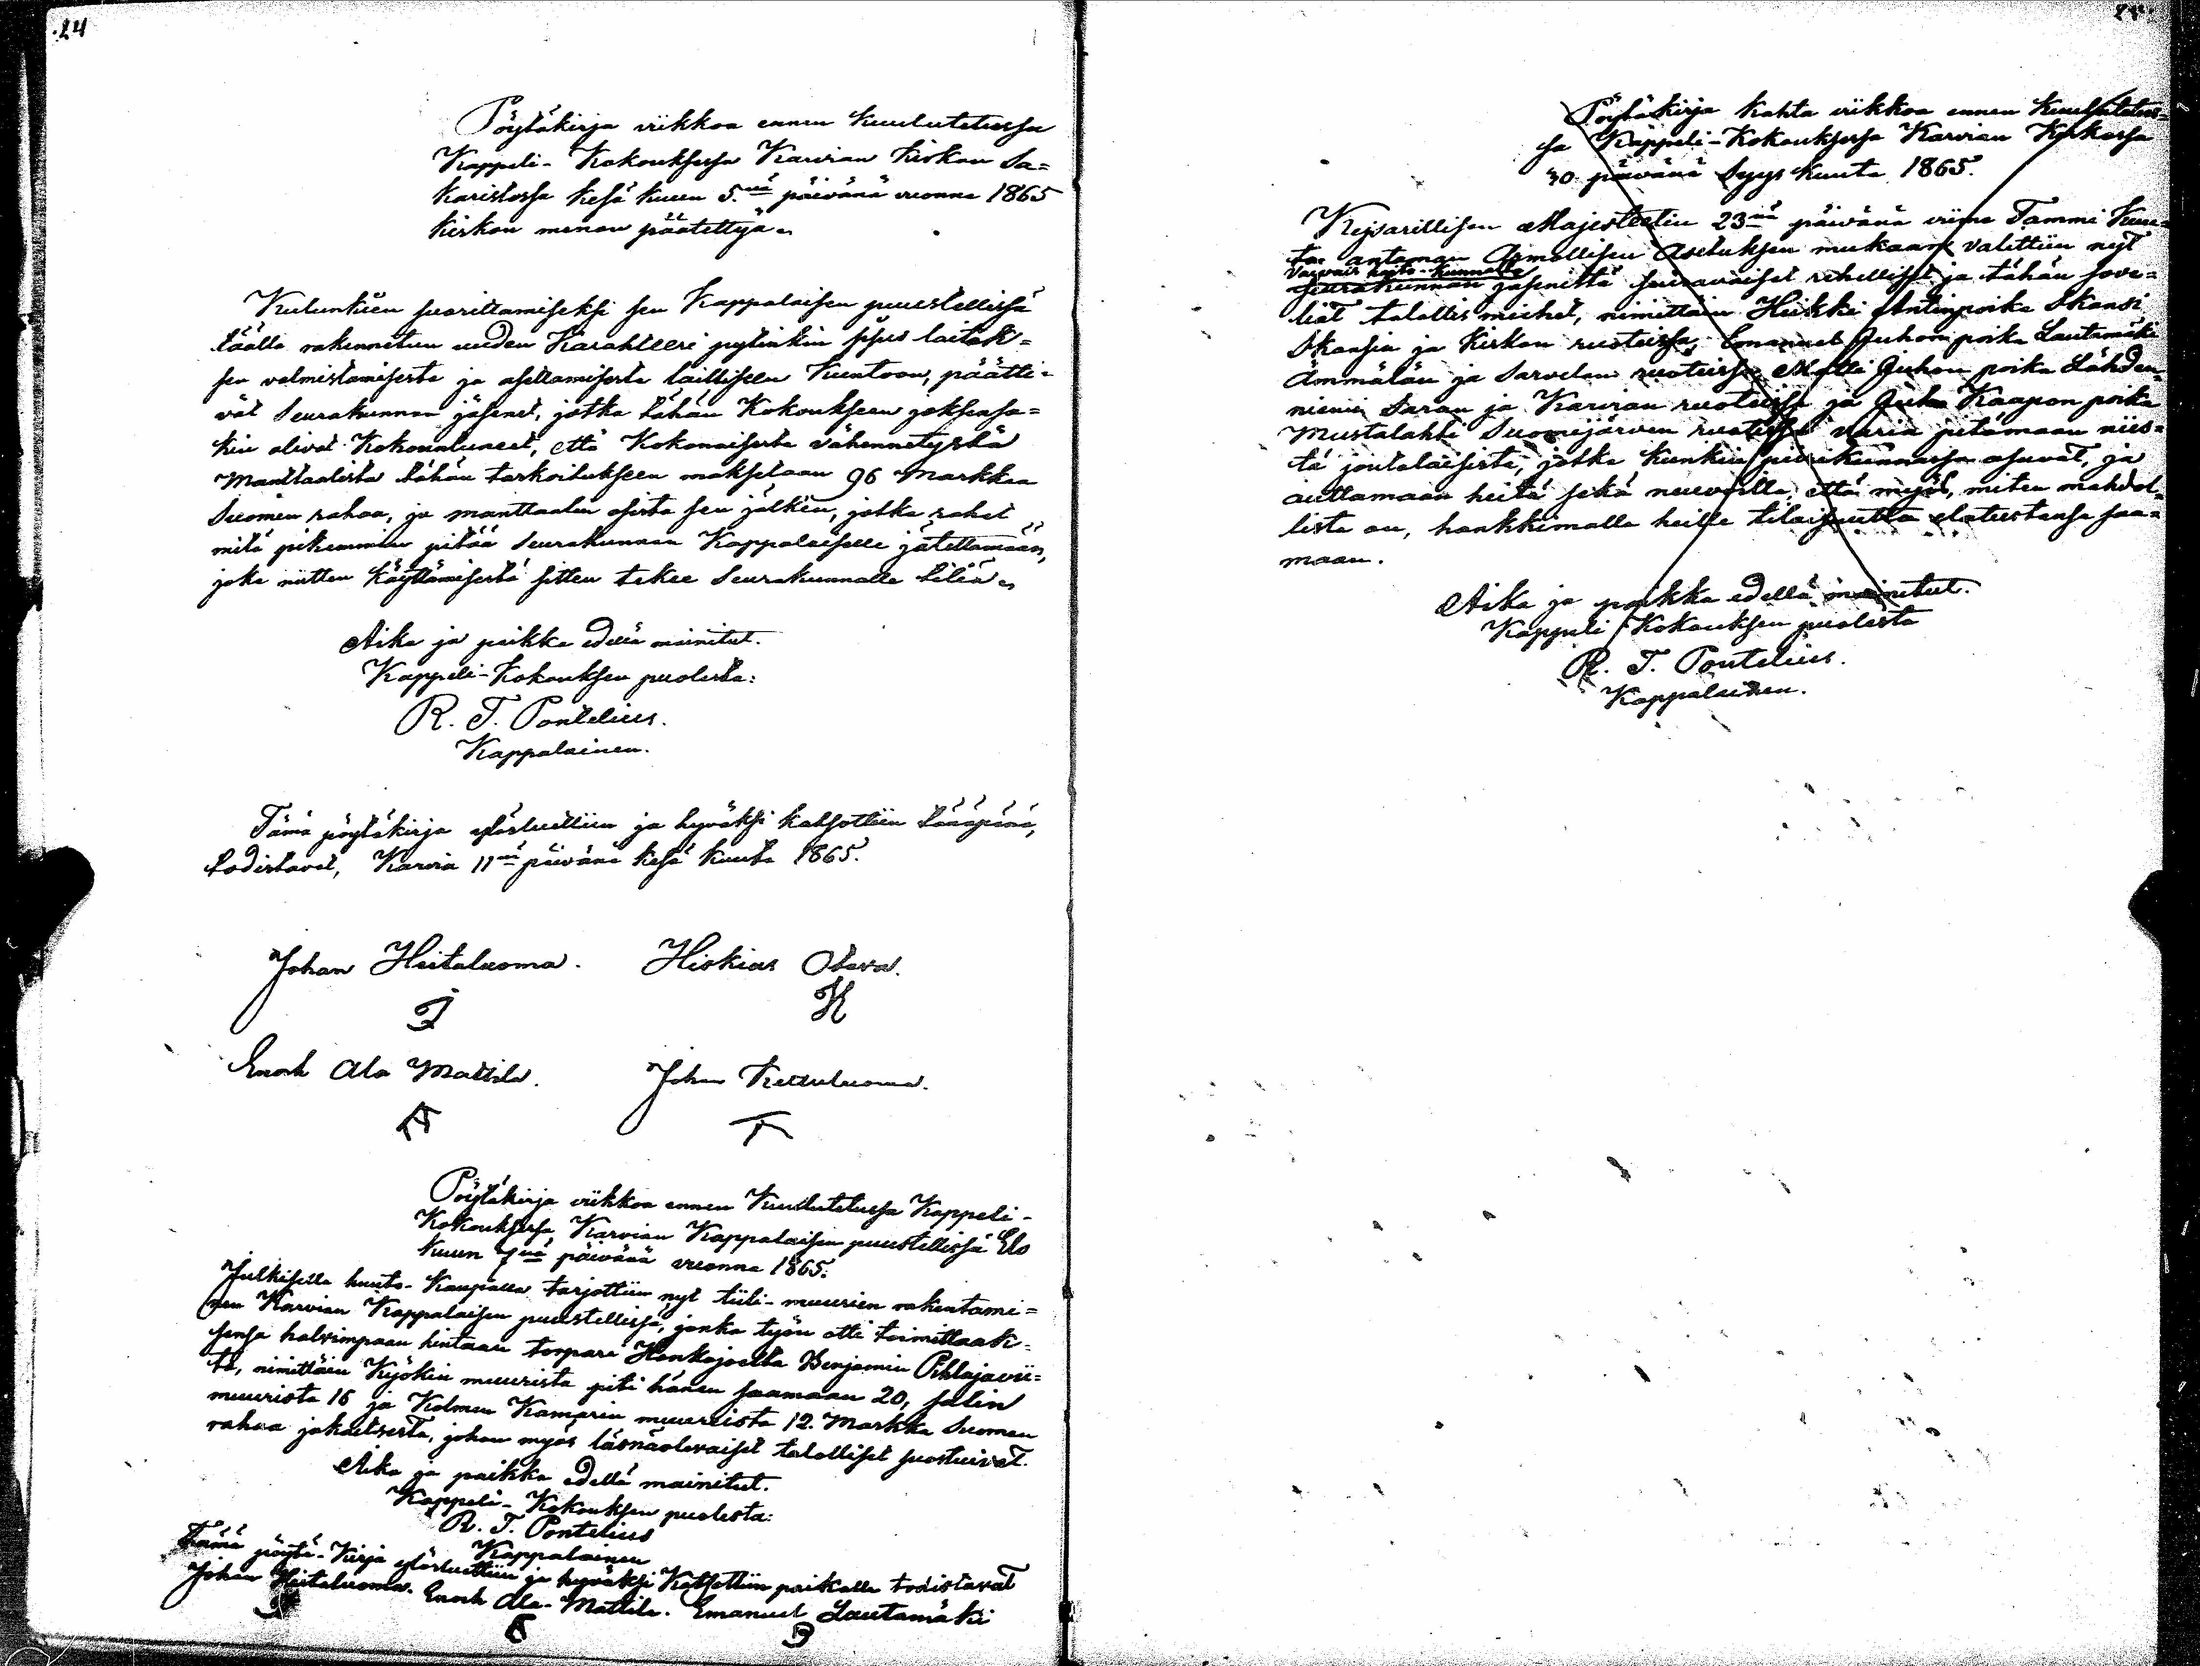 24
Pöytäkirja viikkoa ennen kuulutetussa
Kappeli-Kokouksessa Karvian kirkon Sa=
karistossa kesä kuun 5.nä päivänä vuonna 1865
kirkon menon päätettyä.
Kulunkien suorittamiseksi sen Kappalaisen puustellissä
täällä rakennetun uuden Karakteeri pytinkin sisus laitok=
sen valmistamisesta ja asettamisesta lailliseen kuntoon, päätti=
vät Seurakunnan jäsenet, jotka tähän Kokoukseen joksensa=
kin olivat Kokoontuneet, että Kokonaisesta vähennetystä
Manttaalista tähän tarkoitukseen maksetaan 96 Markkaa
Suomen rahaa, ja manttaalin osista sen jälkeen, jotka rahat
mitä pikemmin pitää Seurakunnan Kappalaiselle jätettämään,
joka niitten käyttämisestä sitten tekee Seurakunnalle tiliä.
Aika ja paikka edellä mainitut.
Kappeli-Kokouksen puolesta:
R. T. Pontelius.
Kappalainen.
Tämä pöytäkirja ylösluettiin ja hyväksi katsottiin tänäpänä,
todistavat, Karvia 11nä päivänä kesä kuuta 1865.
Johan Heitaluoma. Hiskias Otava.
Enok Ala Mattila. Johan Kettuluoma.
Pöytäkirja viikkoa ennen Kuulutetussa Kappeli-
Kokouksessa, Karvian Kappalaisen puustellissä Elo
kuun 7nä päivänä vuonna 1865.
Julkisella huuto-kaupalla tarjottiin nyt tiili-muurien rakentami=
nen Karvian Kappalaisen puustellissa, jonka työn otti toimittaak=
sensa halvimpaan hintaan torpari Honkajoelta Benjamin Pihlajavii=
ta, nimittäin Kyökin muurista piti hänen saamaan 20, salin
muurista 16 ja Kolmen Kamarin muureista 12. Markka Suomen
rahaa jokaisesta, johon myös läsnäolevaiset talolliset suostuivat.
Aika ja paikka edellä mainitut.
Kappeli-Kokouksen puolesta:
R. T. Pontelius
Kappalainen
Tämä pöytä-Kirja ylösluettiin ja hyväksi Katsottiin paikalla todistavat
Johan Heitaluoma. Enok Ala-Mattila. Emanuel Lautamäki
Pöytäkirja kahta viikkoa ennen kuulutetus=
sa Kappeli-Kokouksessa Karvian Kirkossa
30 päivänä Syys kuuta 1865.
Keisarillisen Majesteetin 23nä päivänä viime Tammi kuu=
ta antaman Armollisen Asetuksen mukaan valittiin nyt
Vaivais hoito-kunnalle
Seurakunnan jäseniltä seuraavaiset rehelliset ja tähän sove=
liat talollis miehet, nimittäin Heikki Antinpoika Skansi
Skansin ja Kirkon ruoteissa, Emanuel Juhon poika Lautamäki
Ämmälän ja Sarvelan ruoteissa, Matti Juhon poika Lähden=
niemi Saran ja Karvian ruoteissa ja Juha Kaapon poika
Mustalahti Suomijärven ruoteissa varia pitämään niis=
tä joutolaisista, jotka kunkin piirikunnassa asuvat, ja
auttamaan heitä sekä neuvoilla, että myös, miten mahdol=
lista on, hankkimalla heille tilaisuutta elatustansa saa=
maan.
Aika ja paikka edellä mainitut.
Kappeli Kokouksen puolesta
R. T. Pontelius.
Kappalainen.